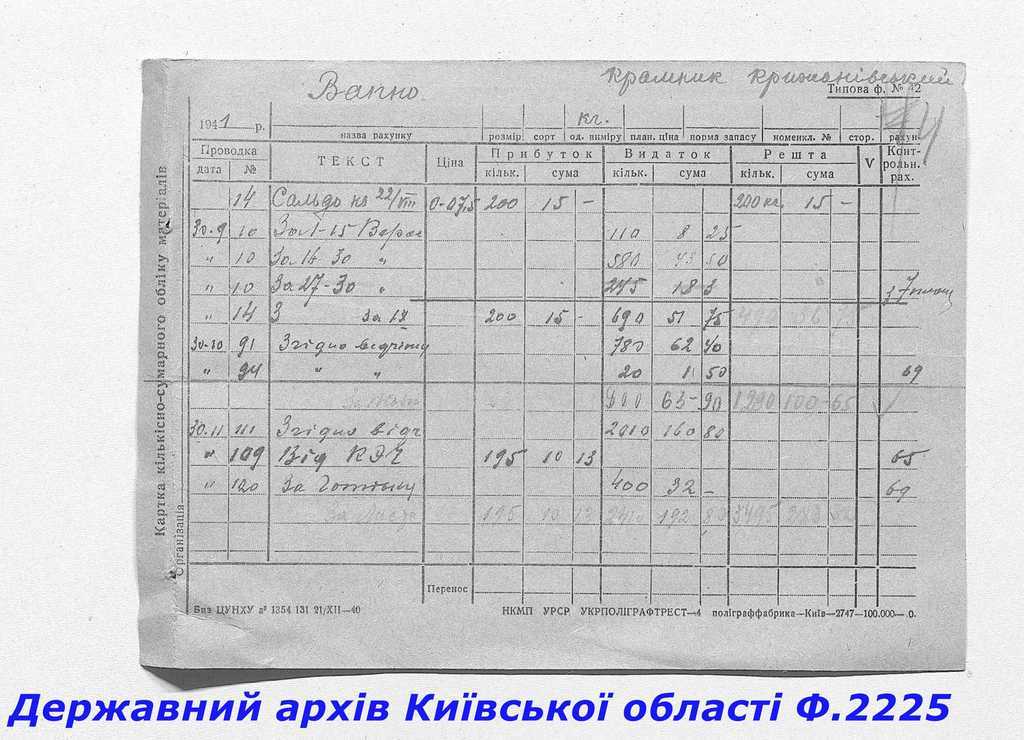 Вапно.
крамник крижанівський
Типова ф. № 42
1941 р.
кг.
назва рахунку розмір сорт од. виміру план. ціна норма запасу номенкл. № стор. рахун.
Проводка ТЕКСТ Ціна Прибуток Видаток Решта V Контрольн. рах.
дата № кільк. сума кільк. сума кільк. сума
14 Сальдо на 22/VIII 0-07,5 200 15 - 200 кг. 15 -
30-9 10 За 1-15 110 8 25
" 10 За 16 30 " 580 43 50
" 10 За 27-30 " 245 18 3
" 14 З За IX 200 15 - 690 51 75
30-10 91 Згідно відчіту 780 62 40
" 94 " " 20 1 50 69
800 63-90 1290 100-65
30.11 111 Згідно відч 2010 160 80
" 109 Від КЭЧ 195 10 13 65
" 120 За 400 32 - 69
195 10 13 192 80
Перенос
Картка кількісно-сумарного обліку матеріалів
Організація
Биз ЦУНХУ 1354 131 21/XII—40
НКМП УРСР УКРПОЛІГРАФТРЕСТ—4 поліграффабрика—Київ—2747—100.000—
Державний архів Київської області Ф.2225